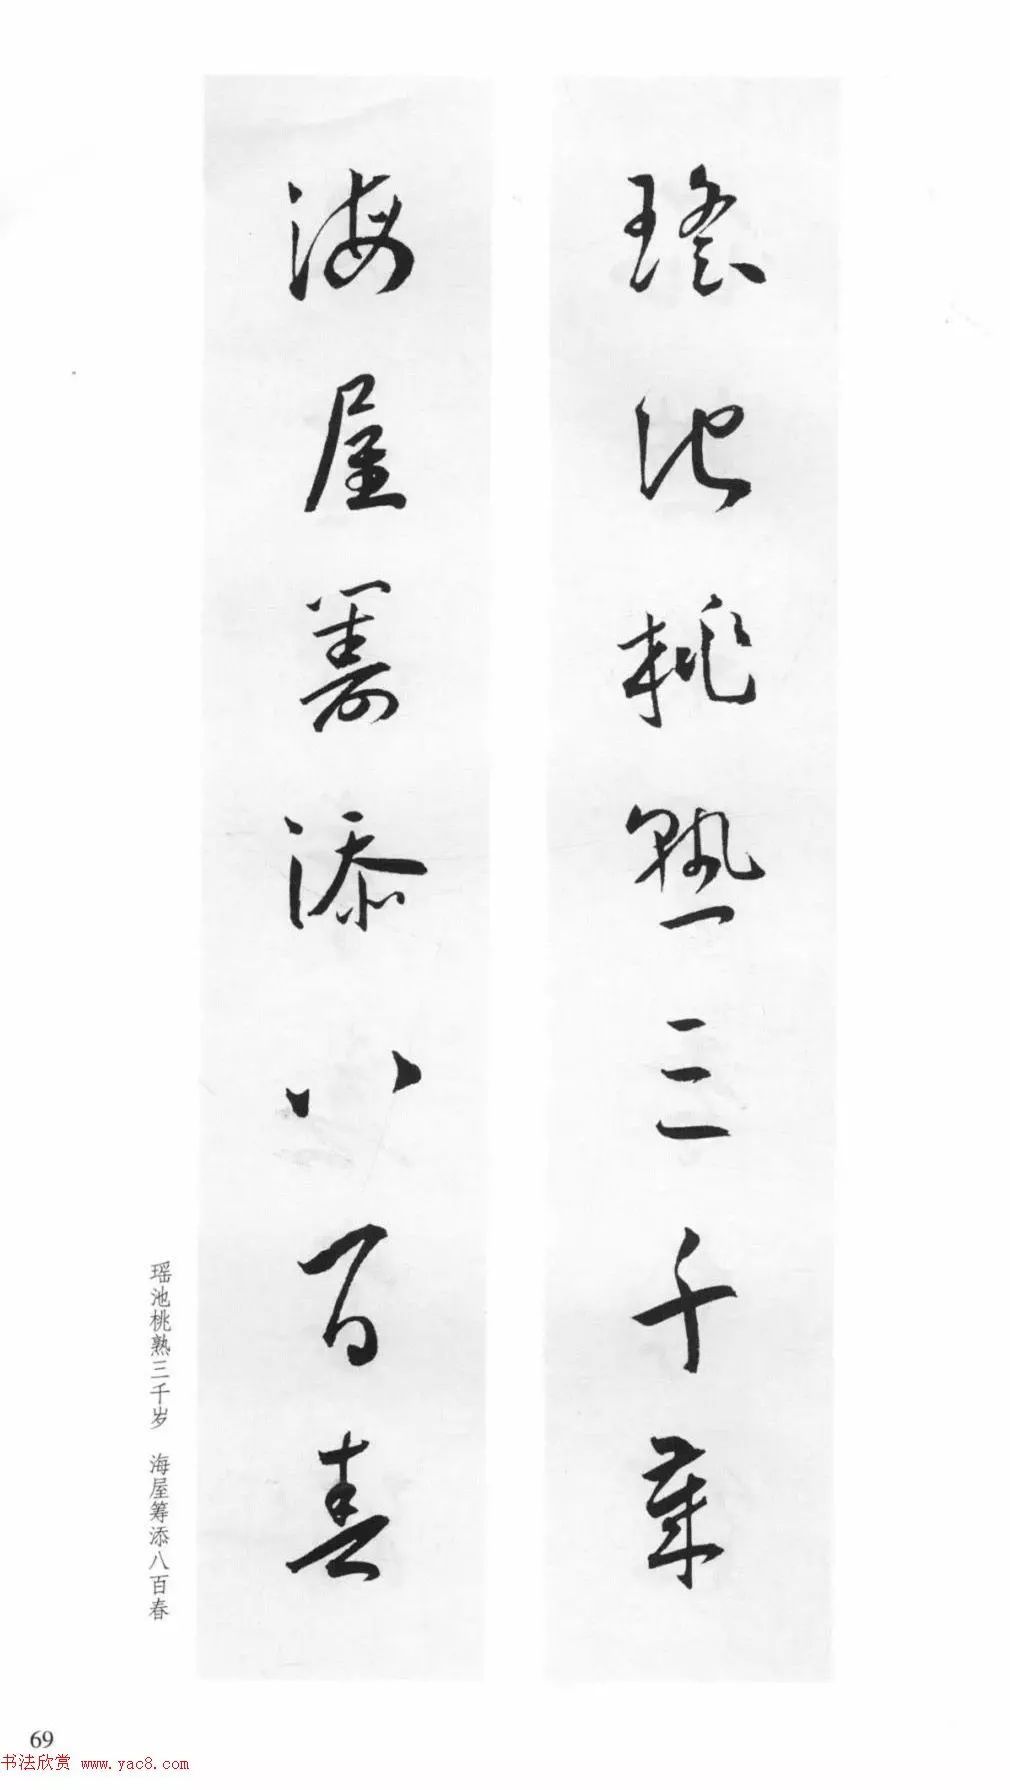 瑤池桃熟三千歲
海屋籌添八百春
瑶池桃熟三千岁　海屋筹添八百春
69
书法欣赏 www.yac8.com